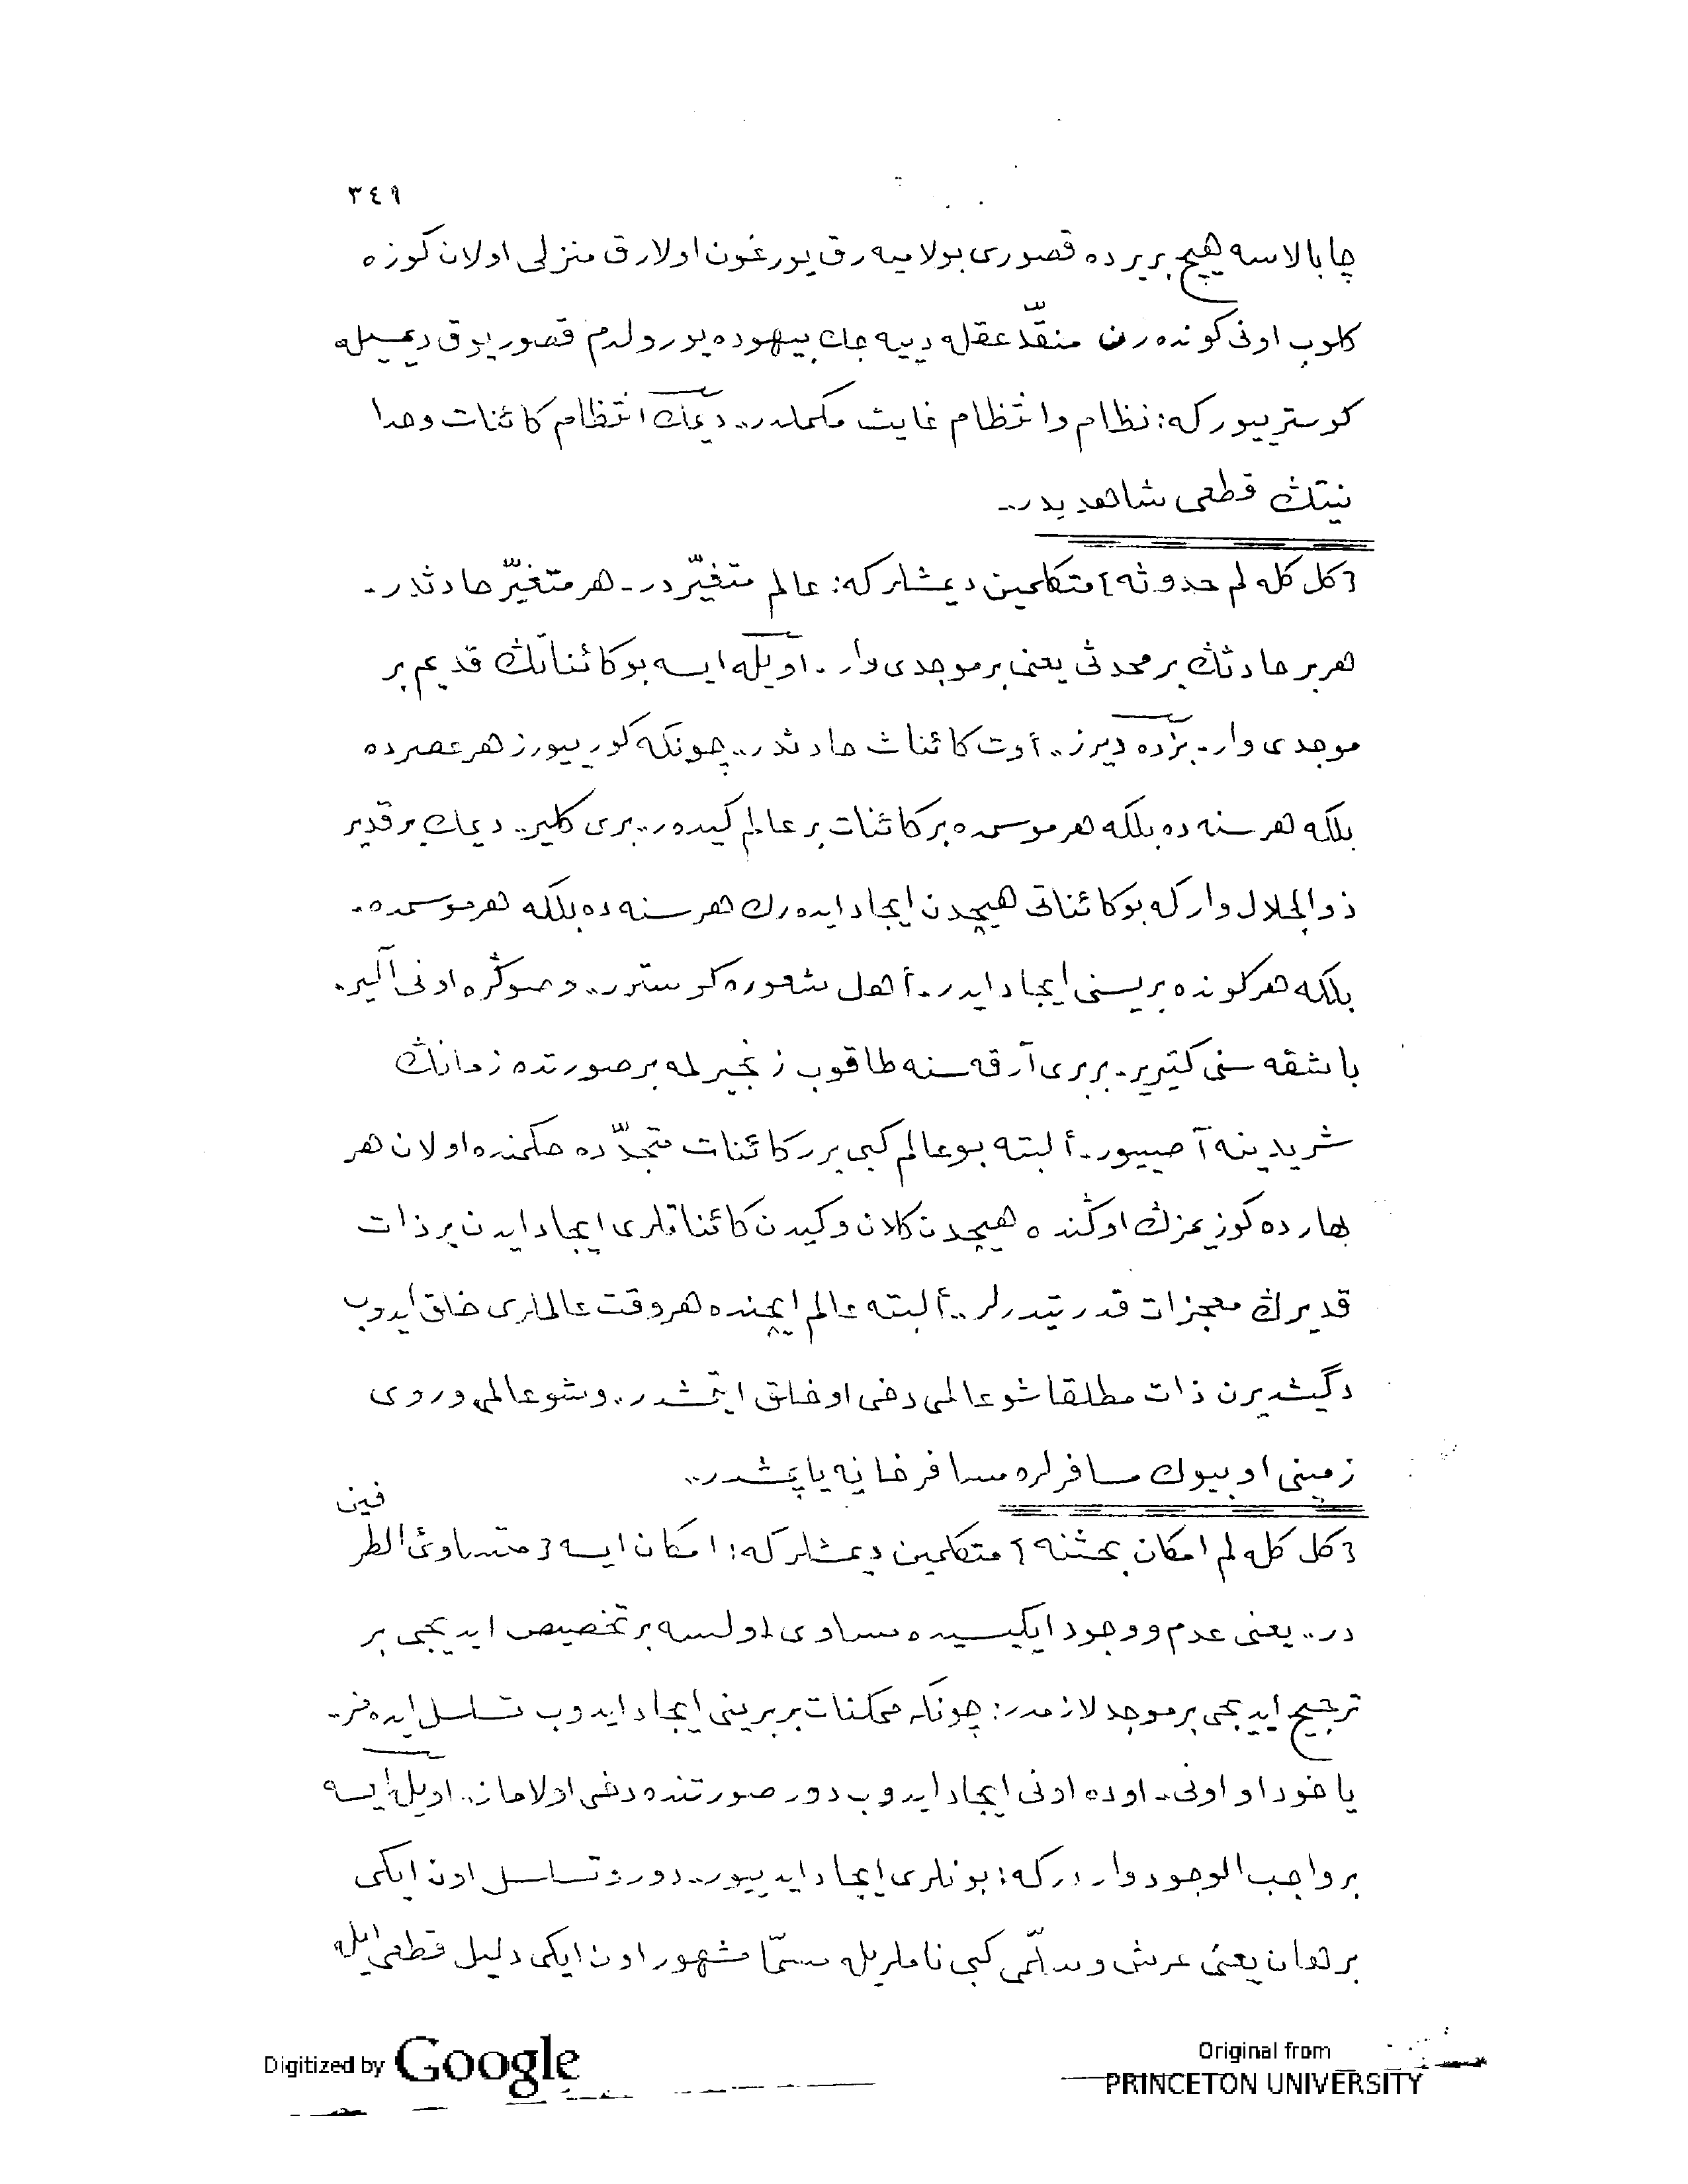 ٣٤٩
چابالاسه هيچ بريرده قصوری بولاميه رق يورغون اولارق منزلی اولان كوزه
كلوب اونی كونده رن منقّد عقله دييه جك بيهوده يورولدم قصور يوق ديمسيله
كوسترييور كه: نظام وانتظام غايت مكملدر.. ديمك انتظام كائنات وحدا
نيتڭ قطعی شاهديدر..
[كل كله لم حدوثه] متكلمين ديمشلر كه: عالم متغيّردر. هر متغيّر حادثدر.
هر بر حادثڭ بر محدثی يعنی بر موجدی وار. اويله ايسه بو كائناتڭ قديم بر
موجدی وار. بزده ديرز.. أوت كائنات حادثدر.. چونكه كورييورز هر عصرده
بلكه هر سنه ده بلكه هر موسمده بر كائنات بر عالم كيدر.. بری كلير.. ديمك بر قدير
ذوالجلال وار كه بو كائناتی هيچدن ايجاد ايده رك هر سنه ده بلكه هر موسمده.
بلكه هر كونده بريسنی ايجاد ايدر. أهل شعوره كوسترر.. وصوڭره اونی آلير.
باشقه سنی كتيرير. بربری آرقه سنه طاقوب زنجيرلمه بر صورتده زمانڭ
شريدينه آصييور. ألبته بو عالم كبی برر كائنات متجدّده حكمنده اولان هر
بهارده كوزيمزڭ اوڭنده هيچدن كلان وكيدن كائناتلری ايجاد ايدن بر ذات
قديرڭ معجزات قدرتيدرلر.. ألبته عالم ايچنده هر وقت عالملری خلق ايدوب
دگيشديرن ذات مطلقا شو عالمی دخی او خلق ايتمشدر.. وشو عالمی وروی
زمينی او بيوك مسافرلره مسافرخانه ياپمشدر..
[كل كله لم امكان بحثنه] متكلمين ديمشلر كه: امكان ايسه [متساوئ الطر فين
در.. يعنی عدم ووجود ايكيسيده مساوی اولسه بر تخصيص ايديجی بر
ترجيح ايديجی بر موجد لازمدر: چونكه ممكنات بربرينی ايجاد ايدوب تسلسل ايده مز.
ياخود او اونی. اوده اونی ايجاد ايدوب دور صورتنده دخی اولاماز.. اويله ايسه
بر واجب الوجود واردر كه: بونلری ايجاد ايدييور.. دور وتسلسل اون ايكی
برهان يعنی عرش وسلّمی كبی ناملريله مسمّا مشهور اون ايكی دليل قطعی ايله
Digitized by Google
Original from
PRINCETON UNIVERSITY